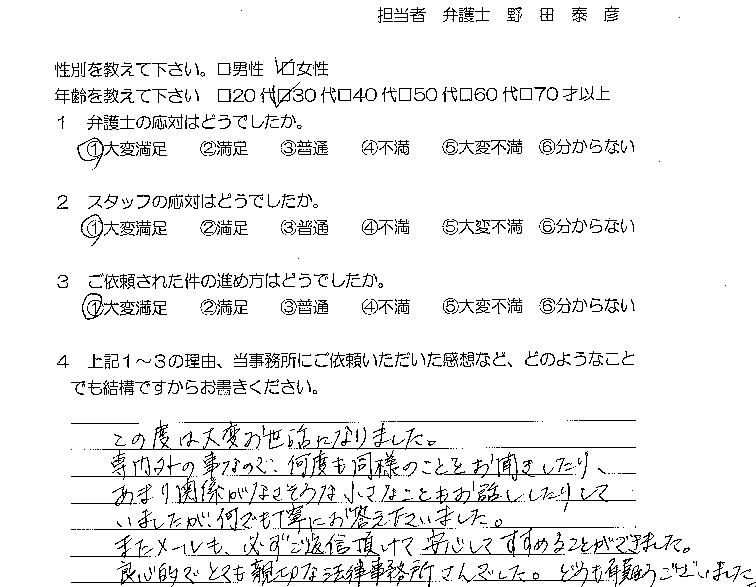 担当者 弁護士 野田 泰彦
性別を教えて下さい。□男性 ☑女性
年齢を教えて下さい □20代☑30代□40代□50代□60代□70才以上
1 弁護士の応対はどうでしたか。
①大変満足 ②満足 ③普通 ④不満 ⑤大変不満 ⑥分からない
2 スタッフの応対はどうでしたか。
①大変満足 ②満足 ③普通 ④不満 ⑤大変不満 ⑥分からない
3 ご依頼された件の進め方はどうでしたか。
①大変満足 ②満足 ③普通 ④不満 ⑤大変不満 ⑥分からない
4 上記1～3の理由、当事務所にご依頼いただいた感想など、どのようなこと
でも結構ですからお書きください。
この度は大変お世話になりました。
専門外の事なので、何度も同様のことをお聞きしたり、
あまり関係がなさそうな小さなこともお話ししたりして
いましたが、何でも丁寧にお答え下さいました。
またメールも、必ずご返信頂けて安心してすすめることができました。
良心的でとても親切な法律事務所さんでした。どうも有難うございました